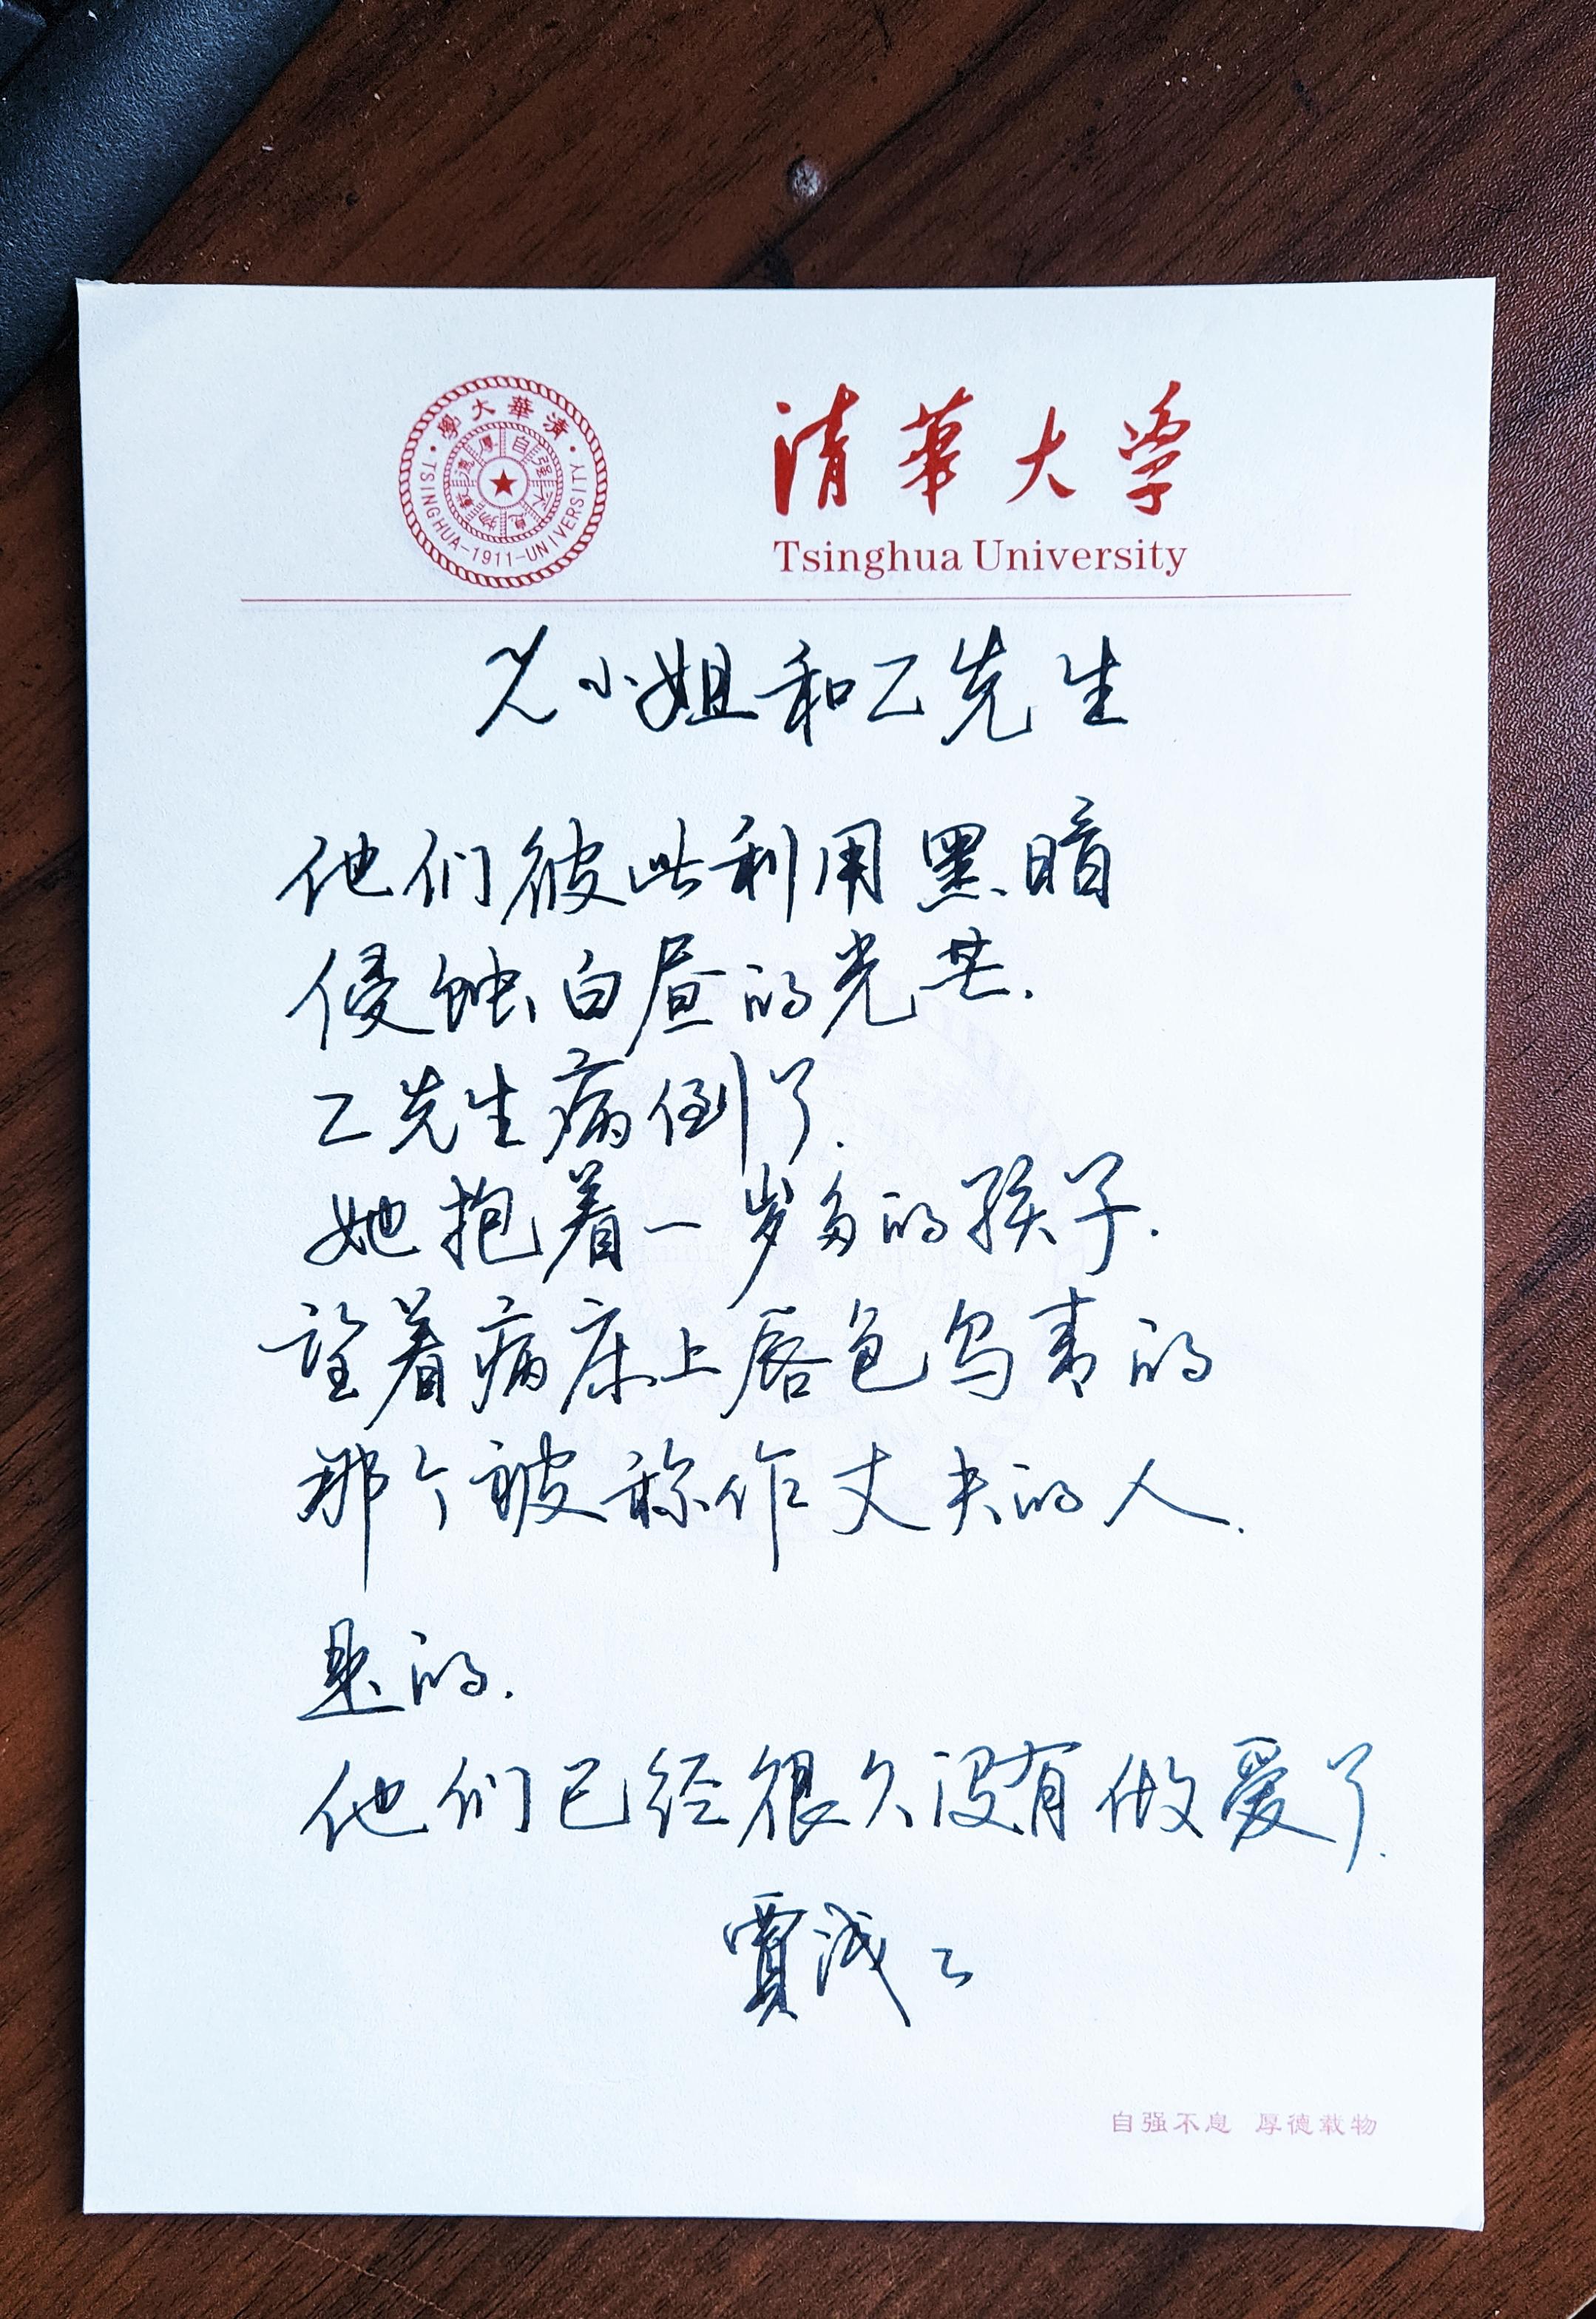 清華大學
TSINGHUA-1911-UNIVERSITY
自强不息
厚德載物
清华大学
Tsinghua University
小姐和乙先生
他们彼此利用黑暗
侵蚀白昼的光芒.
乙先生病倒了.
她抱着一岁多的孩子.
望着病床上唇色乌青的
那个被称作丈夫的人.
是的.
他们已经很久没有做爱了.
賈浅之
自强不息 厚德载物